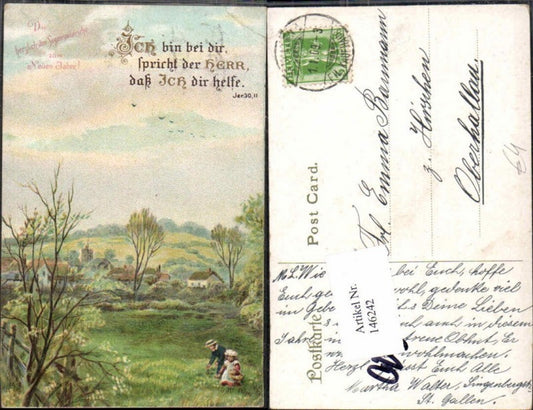 Die
herzlichsten Segenswünsche
zum
Neuen Jahre!
Ich bin bei dir,
spricht der HERR,
daß Ich dir helfe.
Jer.30,11
HELVETIA
Post Card.
Postkarte
Frl. Emma Baumann
z. Hirschen
Oberhallau
64
Artikel Nr.
146242
M. L. Wie bei Euch, hoffe
Euch wohl, gedenke viel
im Gebe Deine Lieben
Jahr auch in diesem
treue Obhut, Er
wohlmachen.
Herzl. Euch Alle
Martha Walter, Singenbergstr.
St. Gallen.